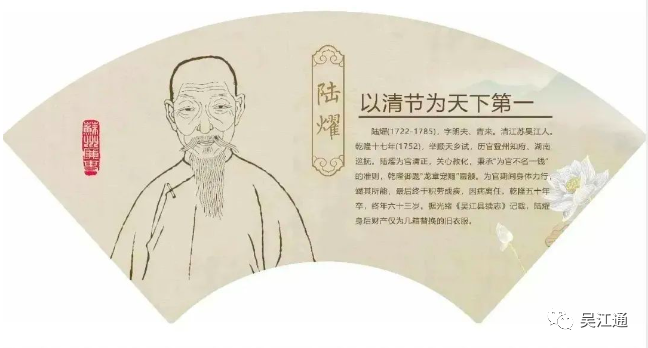 陆
耀
以清节为天下第一
陆耀(1722-1785),字朗夫、青来,清江苏吴江人。
乾隆十七年(1752),举顺天乡试,历官登州知府,湖南
巡抚。陆耀为官清正,关心教化,秉承“为官不名一钱”
的准则,乾隆御题“龙章宠赐”
为官期间身体力行,
竭其所能,最后终于积劳成疾,因病离任,乾隆五十年
卒,终年六十三岁。据光绪《吴江县续志》记载,陆耀
身后财产仅为几箱替换的旧衣服。
吴江通